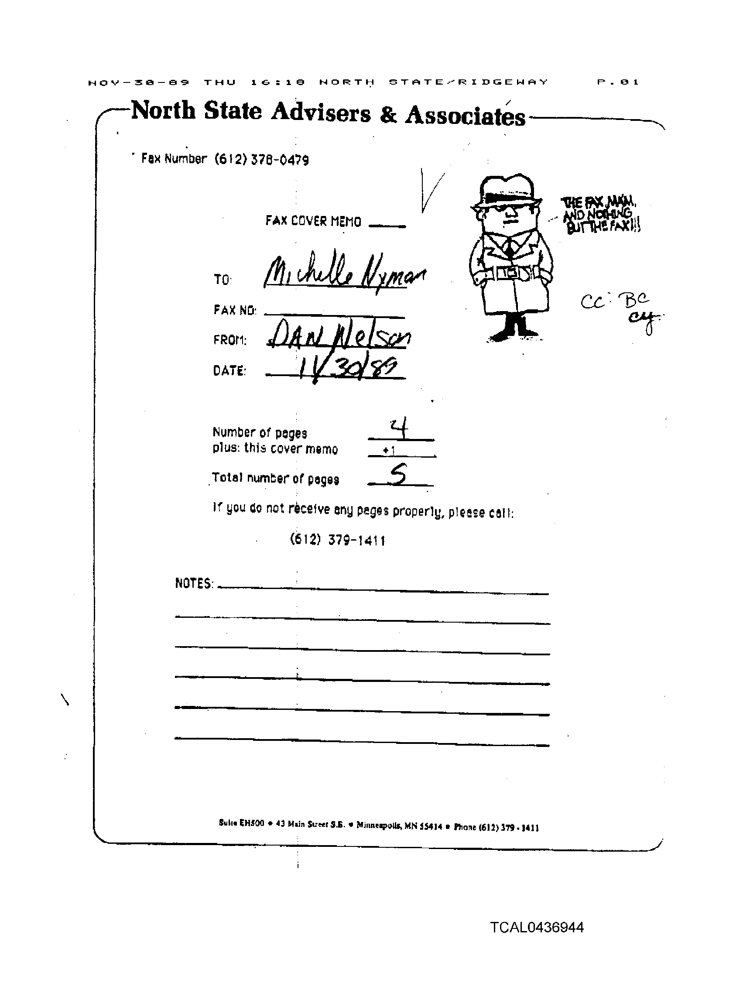 NOV-30-89 THU 16:10 NORTH STATE/RIDGEWAY P.01
North State Advisers & Associates
Fax Number (612) 378-0479
THE FAX, MAM,
AND NOTHING
BUT THE FAX!!!
FAX COVER MEMO
TO: Michelle Nyman
CC: BC
cy
FAX NO:
FROM: DAN Nelson
DATE: 11/30/89
Number of pages 4
plus: this cover memo +1
Total number of pages 5
If you do not receive any pages properly, please call:
(612) 379-1411
NOTES:
Suite EH500 • 43 Main Street S.E. • Minneapolis, MN 55414 • Phone (612) 379-1411
TCAL0436944